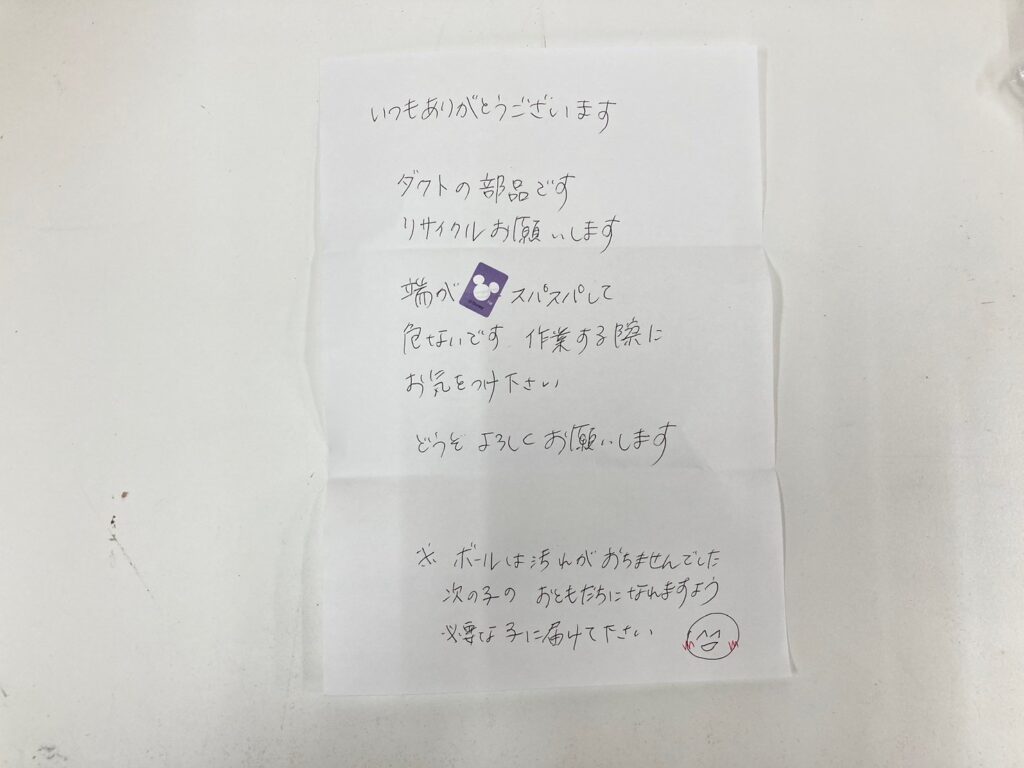 いつもありがとうございます
ダクトの部品です
リサイクルお願いします
端が スパスパして
危ないです 作業する際に
お気をつけ下さい
どうぞ よろしくお願いします
※ ボールは汚れがおちませんでした
次の子の おともだちになれますよう
必要な子に届けて下さい